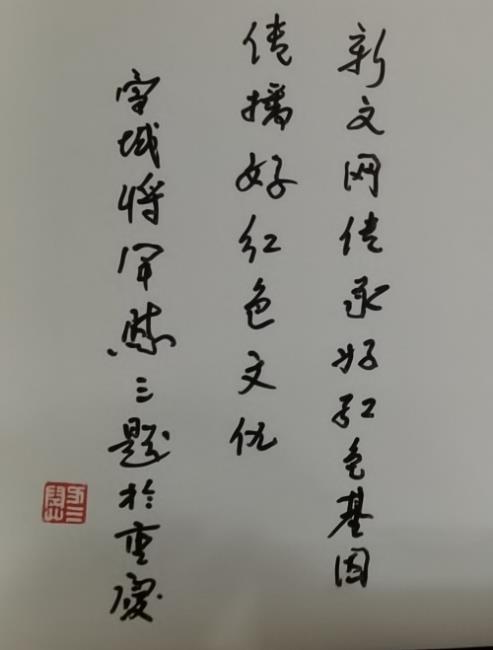 新文网传承好红色基因
传播好红色文化
雪域将军三题於重慶